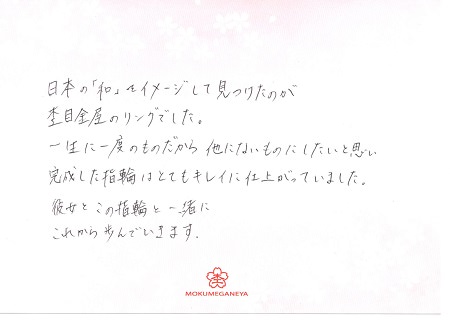 日本の「和」をイメージして見つけたのが
杢目金屋のリングでした。
一生に一度のものだから 他にないものにしたいと思い
完成した指輪はとてもキレイに仕上がっていました。
彼女とこの指輪と一緒に
これから歩んでいきます.
MOKUMEGANEYA